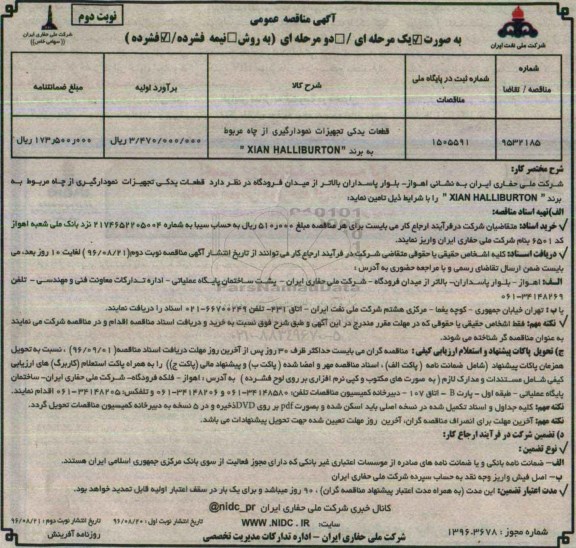 نوبت دوم
آگهی مناقصه عمومی
به صورت ☑یک مرحله ای /☐دو مرحله ای (به روش☐نیمه فشرده/☑فشرده)
شرکت ملی نفت ایران
شرکت ملی حفاری ایران
(سهامی خاص)
شماره مناقصه / تقاضا
شماره ثبت در پایگاه ملی مناقصات
شرح کالا
برآورد اولیه
مبلغ ضمانتنامه
۹۵۳۲۱۸۵
۱۵۰۵۵۹۱
قطعات یدکی تجهیزات نمودارگیری از چاه مربوط به برند "XIAN HALLIBURTON"
۳/۴۷۰/۰۰۰/۰۰۰ ریال
۱۷۳٫۵۰۰٫۰۰۰ ریال
شرح مختصر کار:
شرکت ملی حفاری ایران به نشانی اهواز- بلوار پاسداران بالاتر از میدان فرودگاه در نظر دارد قطعات یدکی تجهیزات نمودارگیری از چاه مربوط به
برند "XIAN HALLIBURTON" را با شرایط ذیل تامین نماید:
الف)تهیه اسناد مناقصه:
✓ خرید اسناد: متقاضیان شرکت درفرآیند ارجاع کار می بایست برای هر مناقصه مبلغ ۵۱۰٫۰۰۰ ریال به حساب سیبا به شماره ۲۱۷۴۶۵۲۲۰۵۰۰۴ نزد بانک ملی شعبه اهواز
کد ۶۵۰۱ بنام شرکت ملی حفاری ایران واریز نمایند.
✓ دریافت اسناد: کلیه اشخاص حقیقی یا حقوقی متقاضی شرکت در فرآیند ارجاع کار می توانند از تاریخ انتشار آگهی مناقصه نوبت دوم(۹۶/۰۸/۲۱) لغایت ۱۰ روز بعد، می
بایست ضمن ارسال تقاضای رسمی و با مراجعه حضوری به آدرس :
الف: اهواز - بلوار پاسداران- بالاتر از میدان فرودگاه - شرکت ملی حفاری ایران - پشت ساختمان پایگاه عملیاتی - اداره تدارکات معاونت فنی و مهندسی - تلفن
۰۶۱-۳۴۱۴۸۲۶۹
یا ب: تهران خیابان جمهوری - کوچه یغما - مرکزی هشتم شرکت ملی نفت ایران - اتاق ۴۳۱- تلفن ۰۲۱-۶۶۷۰۰۲۴۹ اسناد را دریافت نمایند.
نکته مهم: فقط اشخاص حقیقی یا حقوقی که در مهلت مقرر مندرج در این آگهی و طبق شرح فوق نسبت به خرید و دریافت اسناد مناقصه اقدام و در مناقصه شرکت می نمایند
به عنوان مناقصه گر شناخته می شوند.
ج) تحویل پاکات پیشنهاد و استعلام ارزیابی کیفی: مناقصه گران می بایست حداکثر ظرف ۳۰ روز پس از آخرین روز مهلت دریافت اسناد مناقصه(۹۶/۰۹/۰۱) ، نسبت به تحویل
همزمان پاکات پیشنهاد (شامل ضمانت نامه (پاکت الف) ، اسناد مناقصه مهر و امضا شده (پاکت ب) و پیشنهاد مالی (پاکت ج)) را به همراه پاکت استعلام (کاربرگ) های ارزیابی
کیفی شامل مستندات و مدارک لازم (به صورت های مکتوب و کپی نرم افزاری بر روی لوح فشرده ) به آدرس : اهواز - فلکه فرودگاه- شرکت ملی حفاری ایران- ساختمان
پایگاه عملیاتی - طبقه اول - پارت B - اتاق ۱۰۷ - دبیرخانه کمیسیون مناقصات تلفن: ۰۶۱-۳۴۱۴۸۵۸۰ و ۰۶۱-۳۴۱۴۸۲۰۶ و تلفکس: ۰۶۱-۳۴۱۴۸۲۰۵ اقدام نمایند.
نکته مهم: کلیه جداول و اسناد تکمیل شده در نسخه اصلی باید اسکن شده و بصورت pdf بر روی DVD ذخیره و در ۵ نسخه به دبیرخانه کمیسیون مناقصات تحویل گردد.
نکته مهم: آخرین مهلت برای انصراف مناقصه گران، آخرین روز مهلت تعیین شده جهت تحویل پیشنهادات می باشد.
د) تضمین شرکت در فرآیند ارجاع کار:
✓ نوع تضمین:
الف- ضمانت نامه بانکی و یا ضمانت نامه های صادره از موسسات اعتباری غیر بانکی که دارای مجوز فعالیت از سوی بانک مرکزی جمهوری اسلامی ایران هستند.
ب- اصل فیش واریز وجه نقد به حساب سپرده شرکت ملی حفاری ایران
✓ مدت اعتبار تضمین: این مدت (به همراه مدت اعتبار پیشنهاد مناقصه گران) ، ۹۰ روز میباشد و برای یک بار در سقف اعتبار اولیه قابل تمدید خواهد بود.
کانال خبری شرکت ملی حفاری ایران @nidc_pr
سایت: WWW.NIDC.IR
تاریخ انتشار نوبت اول: ۹۶/۰۸/۲۰ تاریخ انتشار نوبت دوم: ۹۶/۰۸/۲۱
شماره مجوز : ۱۳۹۶.۳۶۷۸
شرکت ملی حفاری ایران - اداره تدارکات مدیریت تخصصی
روزنامه آفرینش